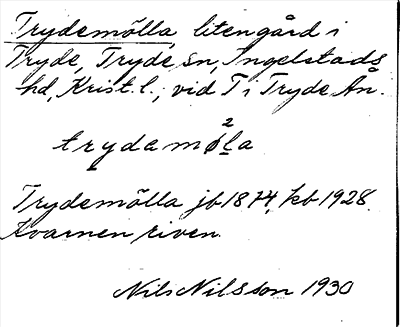 Trydemölla, liten gård i
Tryde, Tryde sn, Ingelstads
hd, Krist. l., vid T i Tryde Ån.
2
trydamøla
Trydemölla jb 1874, kb 1928.
Kvarnen riven.
Nils Nilsson 1930